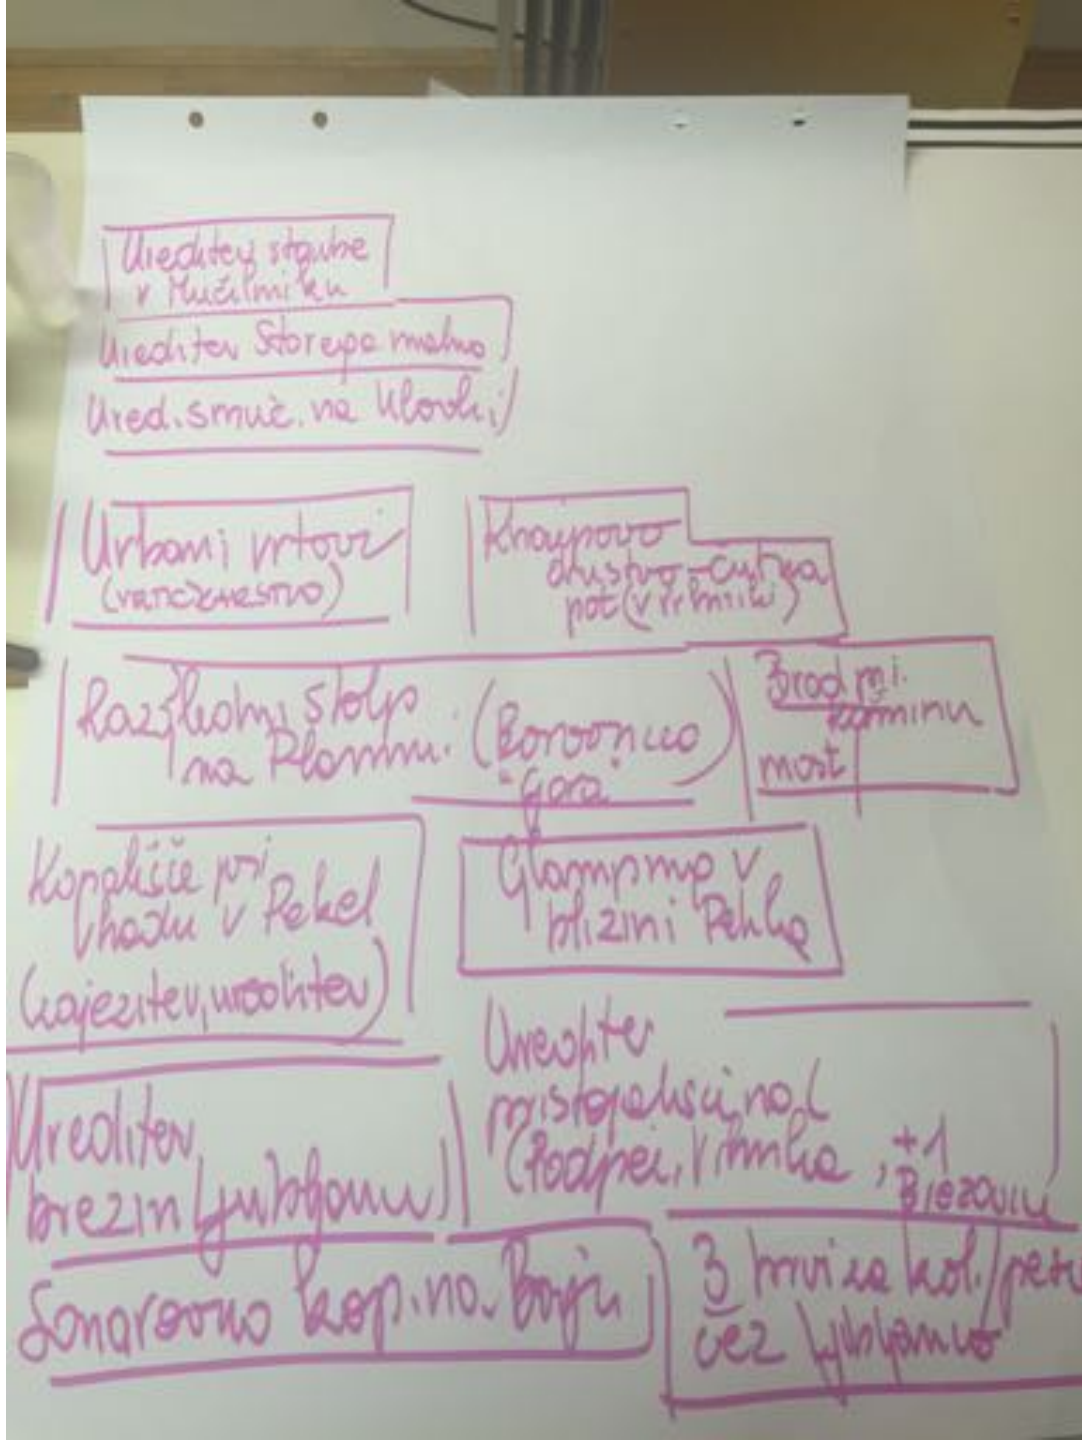 Ureditev stavbe
v Močilniku
Ureditev Storepa malna
Ured. smuč. na Ulovki
Urbani vrtovi
(vrtičkarstvo)
Knajpovo
društvo - čutna
pot (v Vrhniki)
Razgledni stolp
na Planini. (Borovnica
"Gora"
Brod pri
kaminu
most
Kopališče pri
vhodu v Pekel
(zajezitev, ureditev)
Glamping v
bližini Pekla
Ureditev
pristojališč, na L
(Podpeč, Vrhnika, +1
Brezovica
Ureditev
brezin Ljubljanici
kop. na Barju
3 brvi za kol./peš
čez Ljubljanico